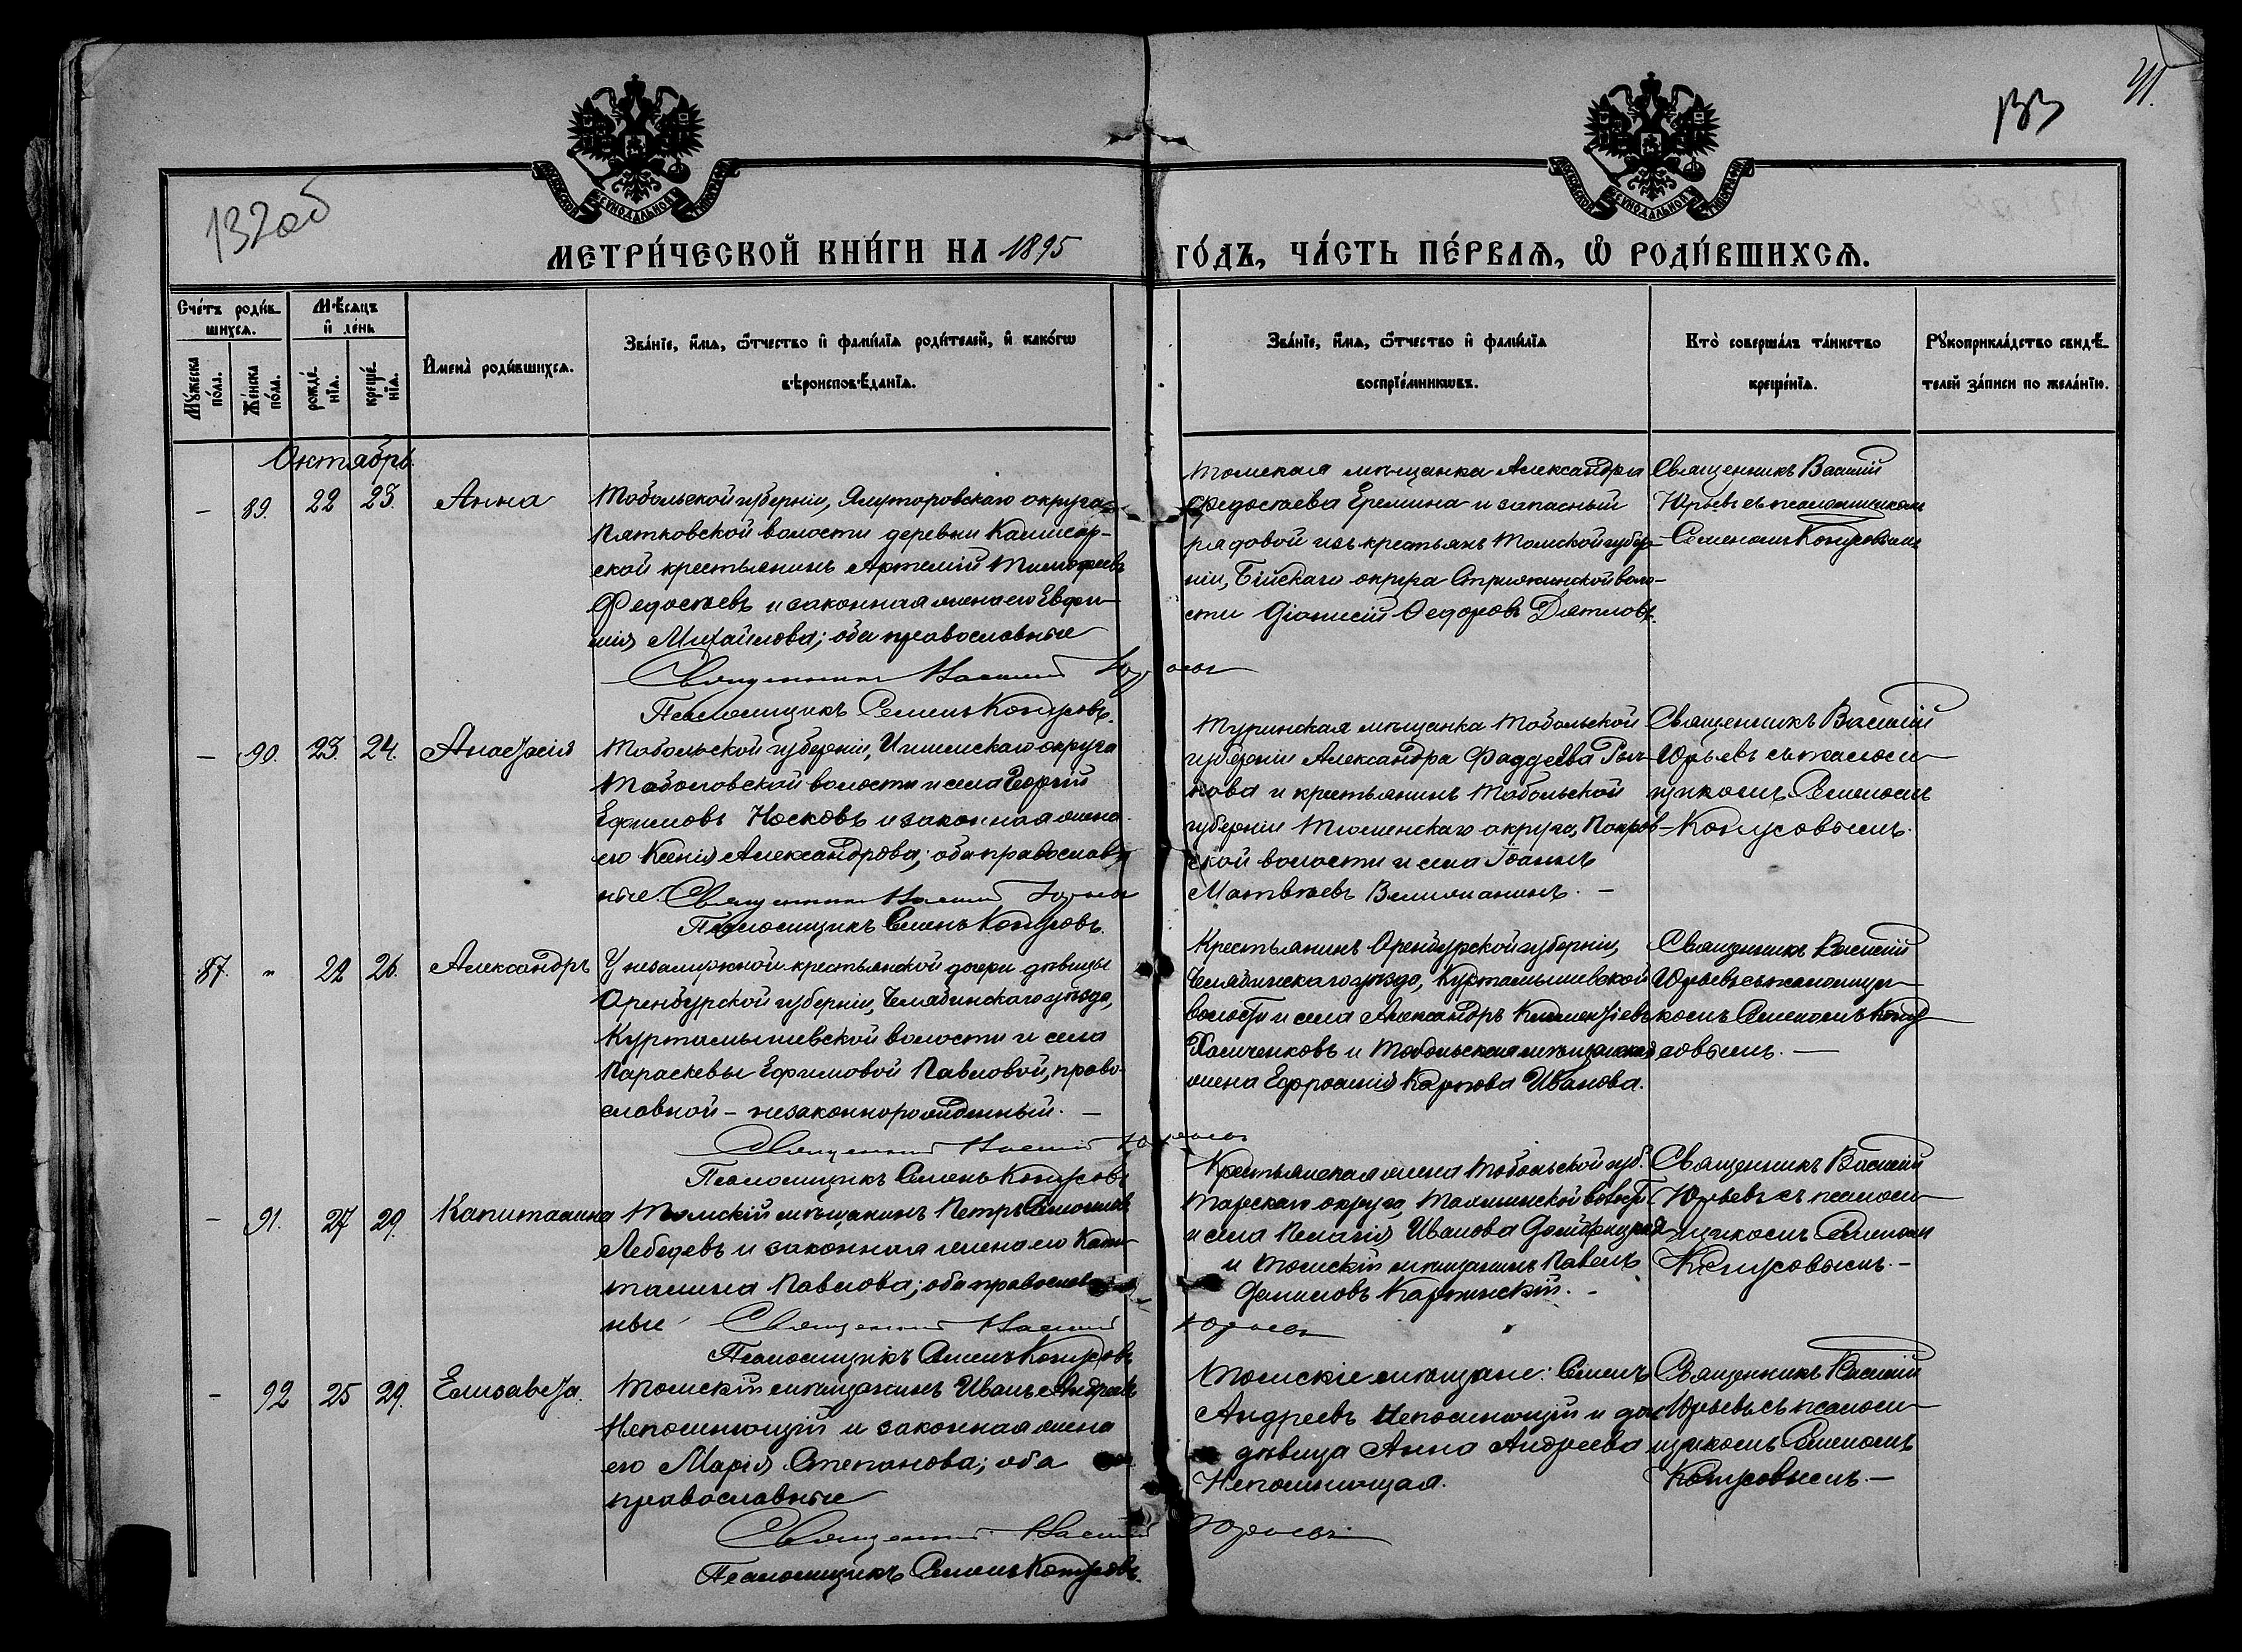 132об
133
41.
МЕТРИ́ЧЕСКОЙ КНИ́ГИ НА 1895
ГО́ДЪ, ЧА́СТЬ ПЕ́РВАѦ, Ѡ РОДИ́ВШИХСѦ.
Сче́тъ роди́в-
шихсѧ.
Мꙋ́жеска по́ла.
Же́нска по́ла.
Мѣ́сѧцъ и де́нь
рожде́нїѧ.
креще́нїѧ.
И҆мена̀ роди́вшихсѧ.
Зва́нїе, и҆́мѧ, ѻ҆́тчество и҆ фами́лїѧ роди́телей, и҆ како́гѡ
вѣроисповѣ́данїѧ.
Зва́нїе, и҆́мѧ, ѻ҆́тчество и҆ фами́лїѧ
воспрїе́мникѡвъ.
Кто̀ соверша́лъ та́инство
креще́нїѧ.
Рꙋкоприкла́дство свидѣ́-
телей за́писи по жела́нїю.
Октябрь.
– 89. 22 23. Анна
Тобольской губерніи, Ялуторовскаго округа
Пятковской волости деревни
ской крестьянинъ Артемій Тимофеевъ
Федосѣевъ и законная жена его Евфи-
мія Михайлова; оба православные
Священникъ Василій Юрьевъ
Псаломщикъ Семенъ Конусовъ.
Томская мѣщанка Александра
Федосѣева Еремина и запасный
рядовой изъ крестьянъ Томской губер-
ніи, Бійскаго округа воло-
сти Діонисій Ѳедоровъ Дятловъ.
Священникъ Василій
Юрьевъ съ псаломщикомъ
Семеномъ Конусовымъ
– 90. 23. 24. Анастасія
Тобольской губерніи, Ишимскаго округа
Тоболовской волости и села Георгій
Ефимовъ Носковъ и законная жена
его Ксенія Александрова; оба православ-
ные. Священникъ Василій Юрьевъ
Псаломщикъ Семенъ Конусовъ.
Туринская мѣщанка Тобольской
губерніи Александра Фаддеева
кова и крестьянинъ Тобольской
губерніи Тюменскаго округа, Покров-
ской волости и села Іоаннъ
Матвѣевъ
Священникъ Василій
Юрьевъ съ псалом-
щикомъ Семеномъ
Конусовымъ.
87. " 22 26. Александръ
У незамужной крестьянской дочери дѣвицы
Оренбургской губерніи, Челябинскаго уѣзда,
Куртамышевской волости и села
Параскевы Ефимовой Павловой, право-
славной – незаконнорожденный. –
Священникъ Василій Юрьевъ
Псаломщикъ Семенъ Конусовъ
Крестьянинъ Оренбургской губерніи,
Челябинскаго уѣзда, Куртамышевской
волости и села Александръ Климентіевъ
и Тобольская мѣщанская
жена Ефросинія Карпова Иванова.
Священникъ Василій
Юрьевъ съ псаломщи-
комъ Семеномъ Кону-
совымъ. –
– 91. 27 29. Капиталина
Томскій мѣщанинъ Петръ Семеновъ
Лебедевъ и законная жена его Капи-
талина Павлова; оба православ-
ные Священникъ Василій Юрьевъ
Псаломщикъ Семенъ Конусовъ
Крестьянская жена Тобольской губ.
Тарскаго округа, волости
и села Пелагія Иванова
и Томскій мѣщанинъ Павелъ
Даниловъ Карпинскій. –
Священникъ Василій
Юрьевъ съ псалом-
щикомъ Семеномъ
Конусовымъ. –
– 92 25 29. Елисавета.
Томскій мѣщанинъ Иванъ Андреевъ
Непомнющій и законная жена
его Марія Степанова; оба
православные
Священникъ Василій Юрьевъ
Псаломщикъ Семенъ Конусовъ.
Томскіе мѣщане: Семенъ
Андреевъ Непомнющій и
дѣвица Анна Андреева
Непомнющая.
Священникъ Василій
Юрьевъ съ псалом-
щикомъ Семеномъ
Конусовымъ. –